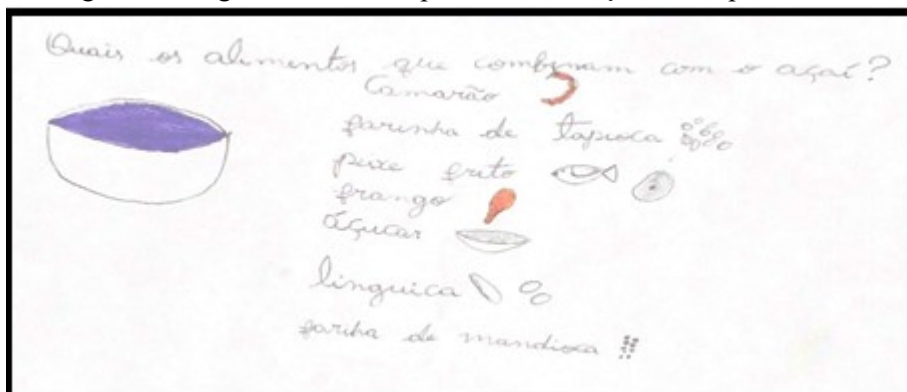 Quais os alimentos que combinam com o açaí?
Camarão
farinha de tapioca
peixe frito
frango
açucar
linguica
fariha de mandioca